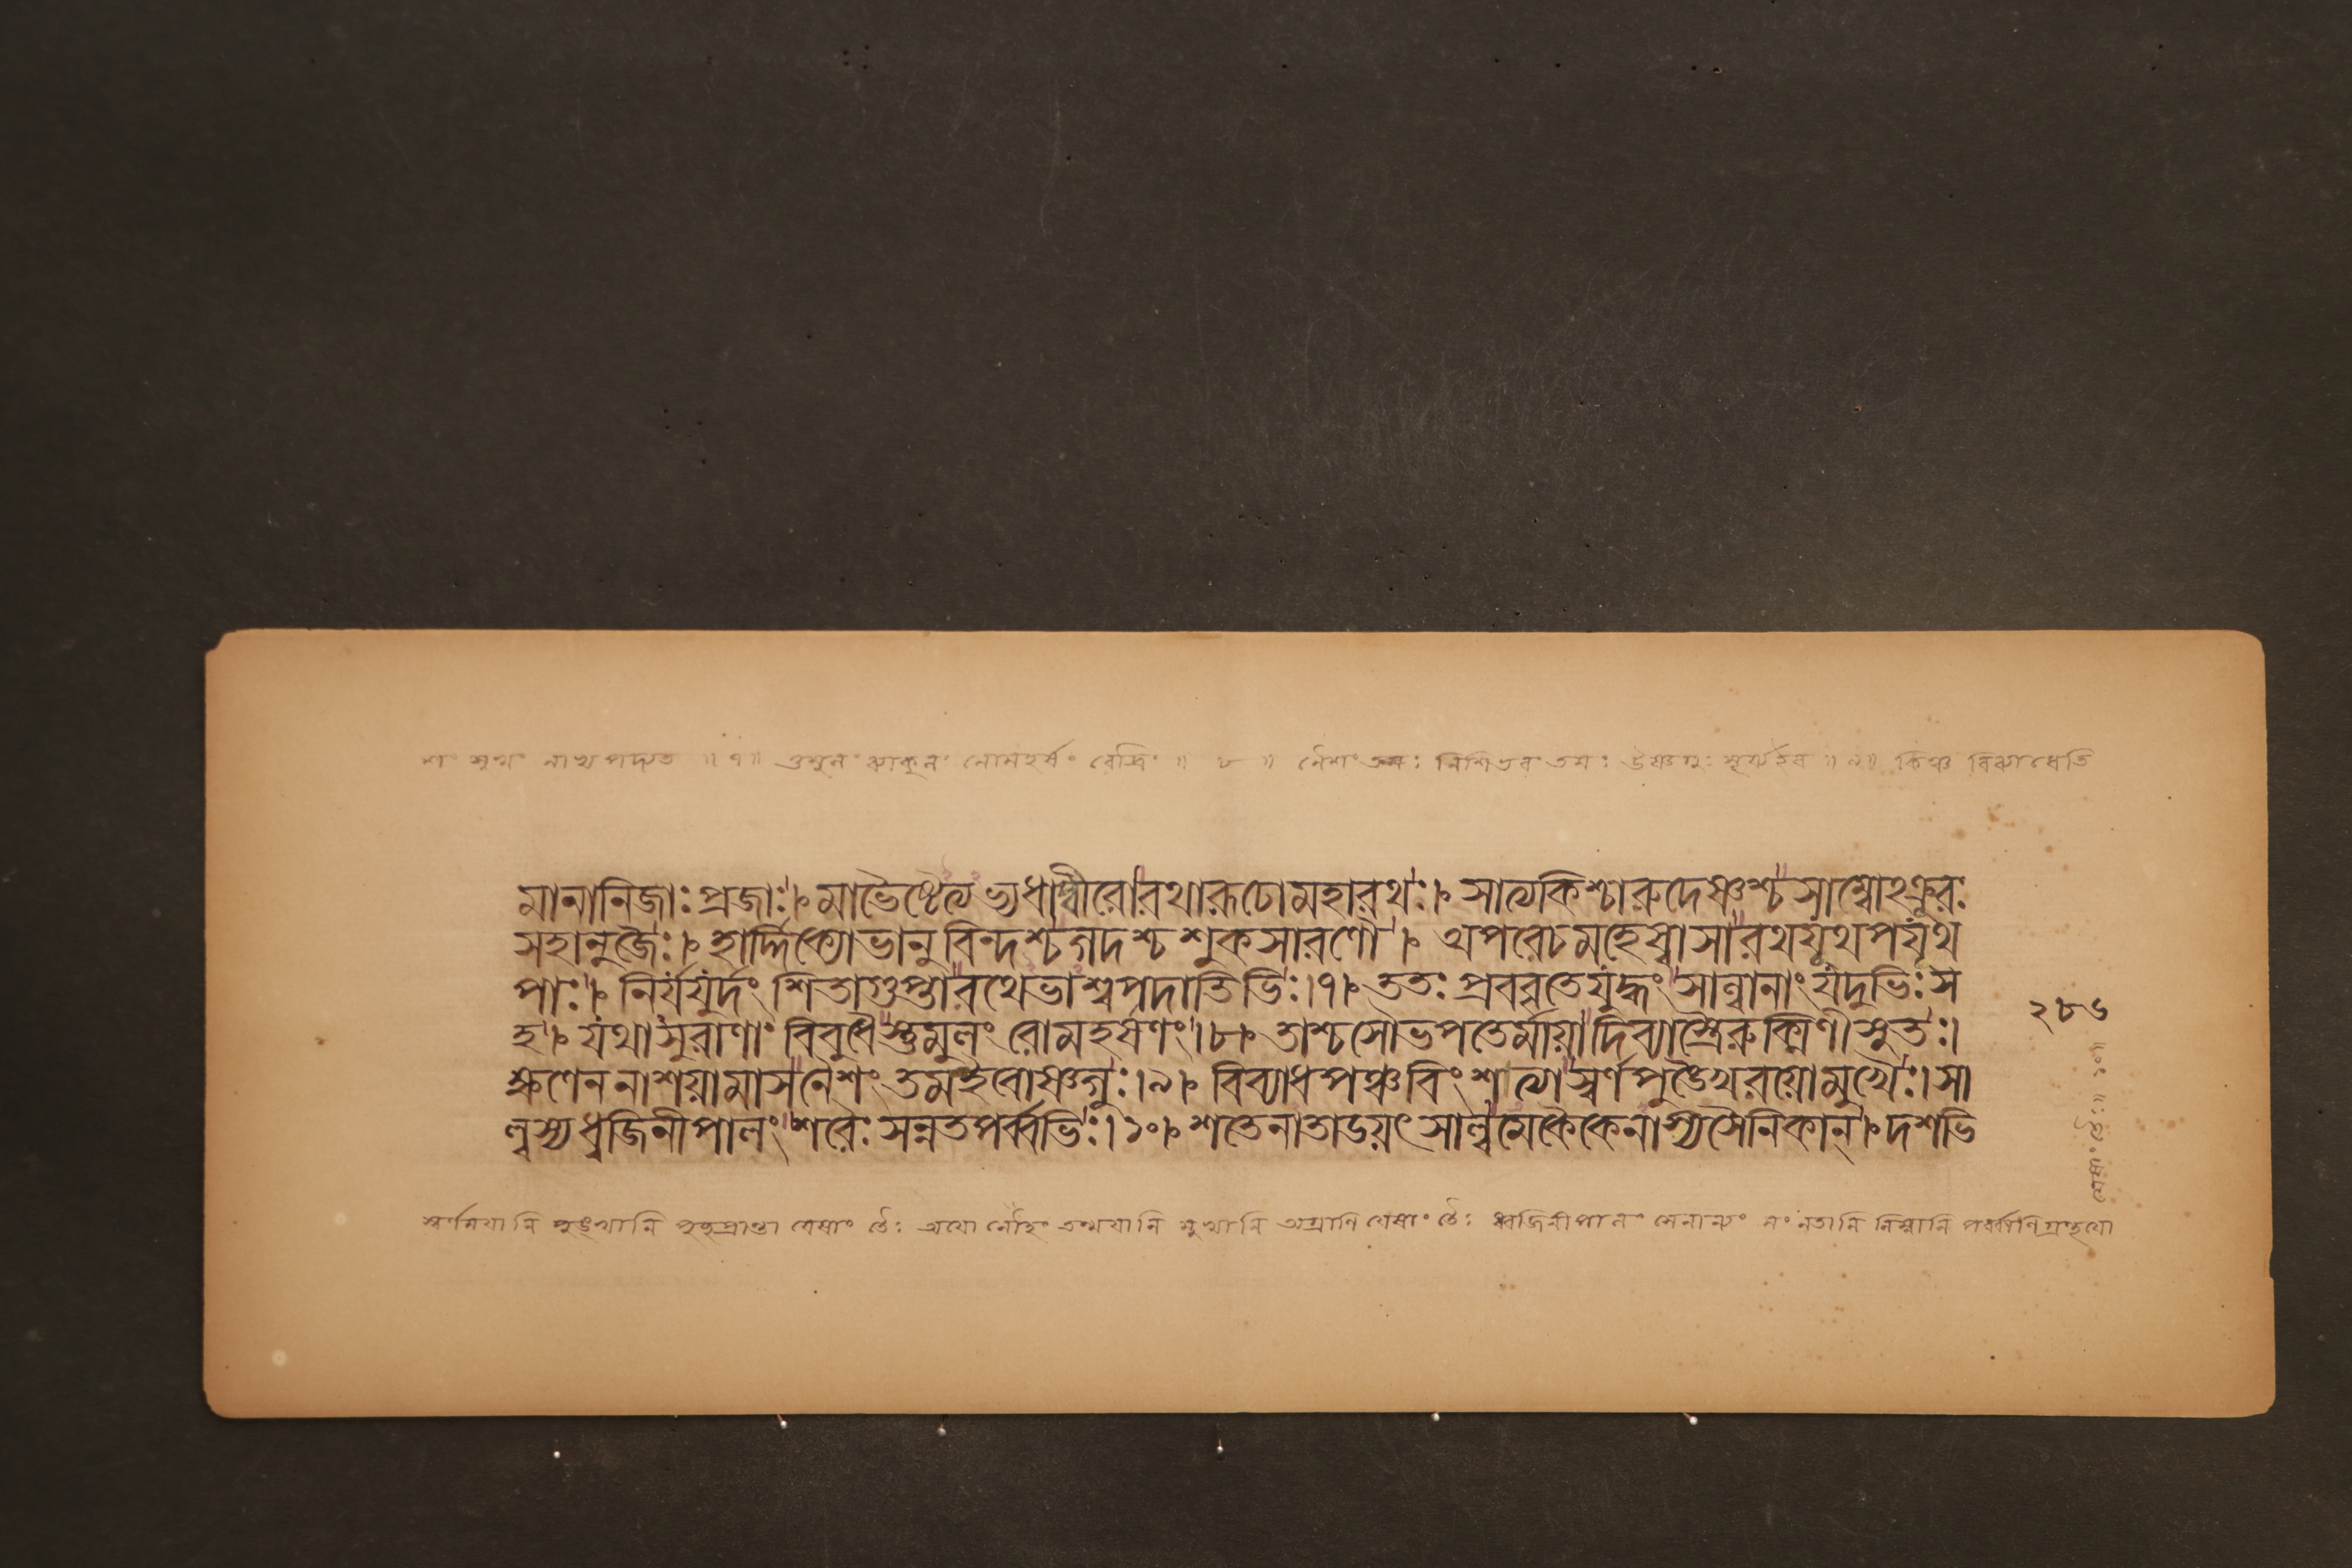 শং সুখং নাখ পদ্যত ॥৭॥ তুমুলং ব্যাকুলং লোমহর্ষং রোদ্রিং ॥ ৮ ॥ নৈশং তমঃ নিশিভবং তমঃ উষ্ণগুঃ সূর্য্যইব ॥৯॥ কিঞ্চ বিব্যাধেতি
মানানিজাঃ প্রজাঃ।মাভৈষ্টেত্যভ্যধাদ্বীরোরথারূঢোমহারথঃ। সাত্যকিশ্চারুদেষ্ণশ্চসাম্বোঽক্রূরঃ
সহানুজৈঃ।হার্দ্দিক্যোভানুবিন্দশ্চগদশ্চশুকসারণৌ। অপরেচমহেষ্বাসারথযূথপযূথ
পাঃ। নির্যযুর্দংশিতাগুপ্তারথেভাশ্বপদাতিভিঃ।৭। ততঃ প্রববৃতেযুদ্ধংসাল্বানাংযদুভিঃস
হ। যথাসুরাণাং বিবুধৈস্তুমুলং রোমহর্ষণং।৮। তাশ্চসৌভপতের্মায়াদিব্যাস্ত্রৈরুক্মিণীসুতঃ।
ক্ষণেননাশয়ামাসনৈশংতমইবোষ্ণগুঃ।৯। বিব্যাধপঞ্চবিংশত্যাস্বর্ণপুঙ্খৈরয়োমুখৈঃ।সা
ল্বস্যধ্বজিনীপালংশরৈঃ সন্নতপর্ব্বভিঃ।১০।শতেনাতাডয়ৎসাল্বমেকৈকেনাস্যসৈনিকান্।দশভি
২৮৬
স্বর্ণময়ানি পুঙ্খানি যেষাং তৈঃ অয়ো লৌহং তন্ময়ানি মুখানি অগ্রাণি যেষাং তৈঃ ধ্বজিনীপালং সেনান্যং সং নতানি নিম্নানি পর্ব্বাণি গ্রন্থয়ো
যেষাং তৈঃ॥ ১০॥